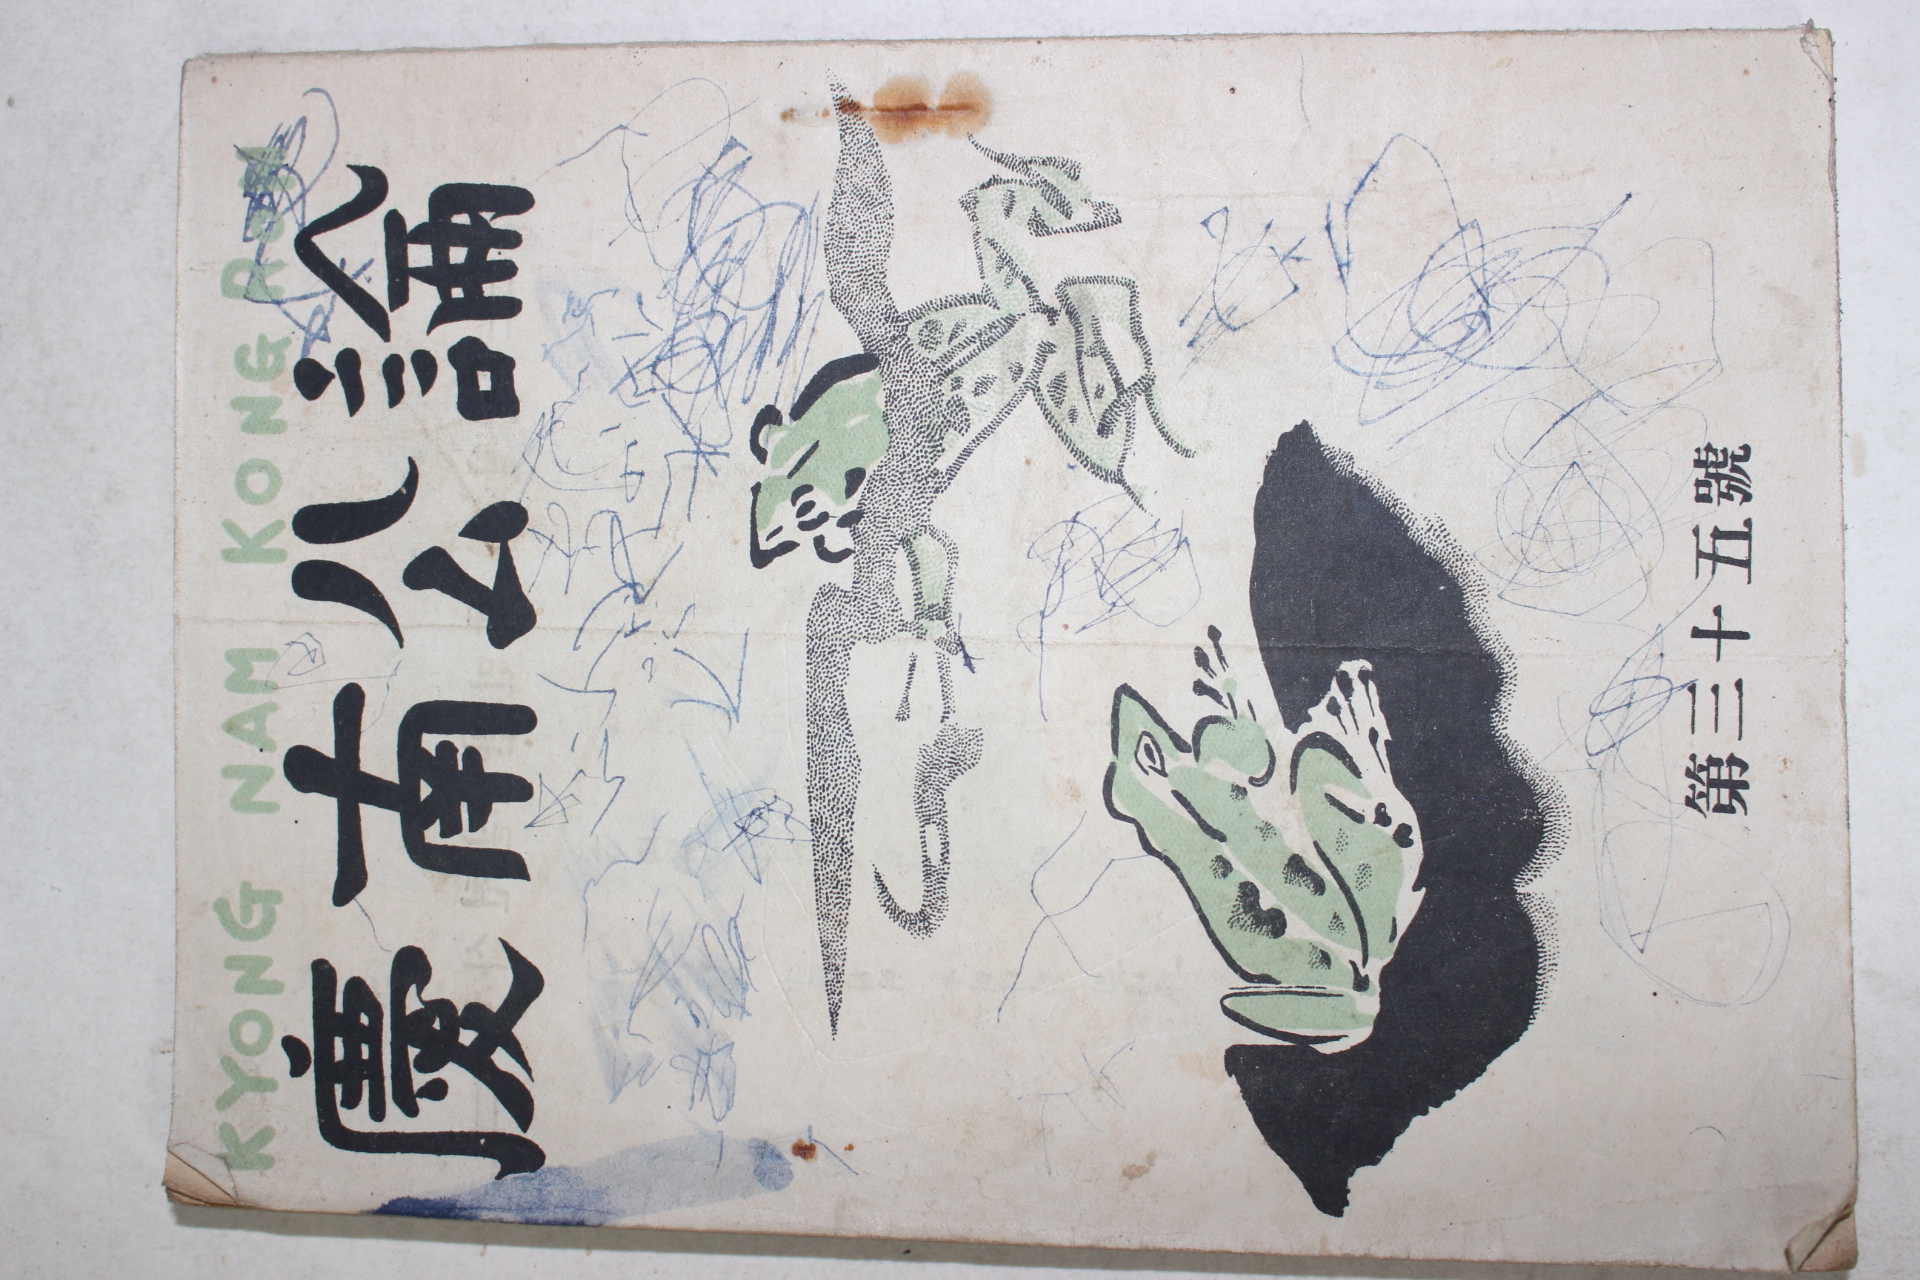 KYONG NAM KONG RON
慶南公論
第三十五號